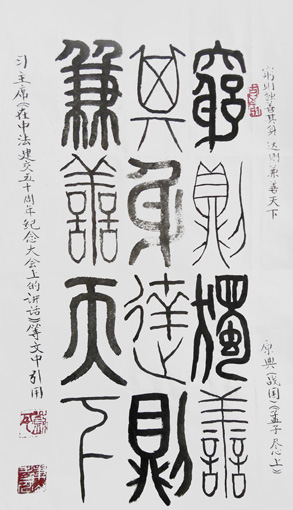 穷则独善其身 达则兼善天下
原典(战国)《孟子 尽心上》
窮則獨善
其身達則
兼善天下
习主席《在中法建交五十周年纪念大会上的讲话》等文中引用